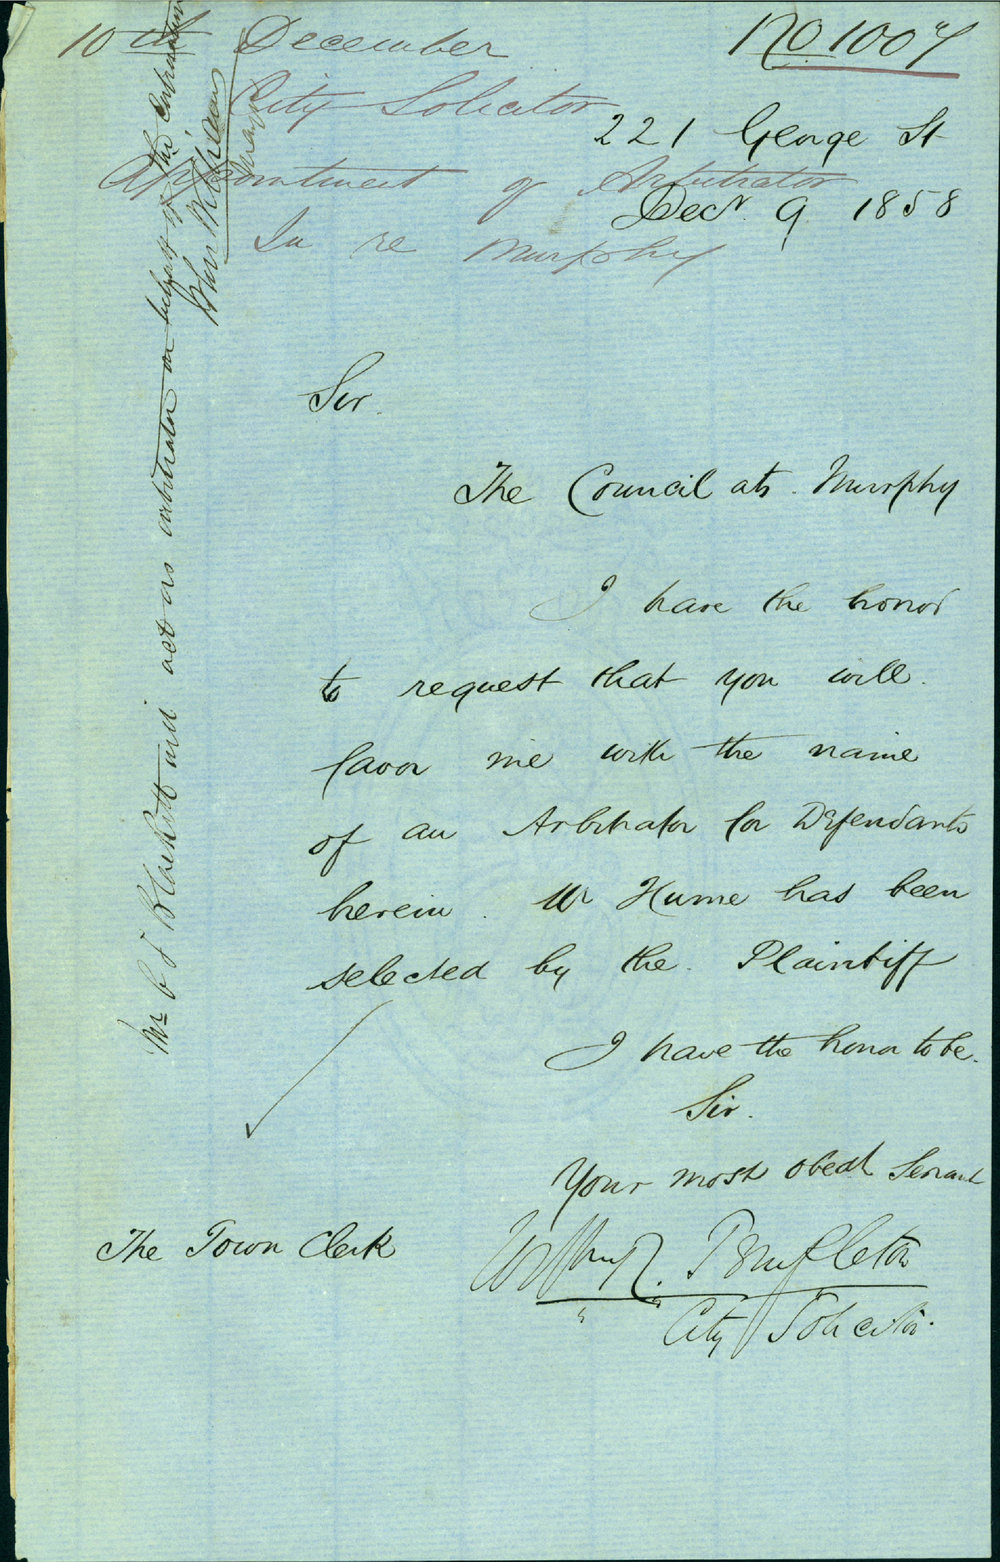 10th December
No 1007
City Solicitor
221 George St
Appointment of Arbitrator
Decr. 9 1858
In re Murphy
Sir.
The Council ats. Murphy
I have the honor
to request that you will
favor me with the name
of an Arbitrator for Defendants
herein. Mr Hume has been
selected by the Plaintiff
I have the honor to be.
Sir.
Your most obedt Servant
Templeton
City Solicitor.
The Town Clerk
Mr C J Blackett will act as arbitrator on behalf of the Corporation
Mayor